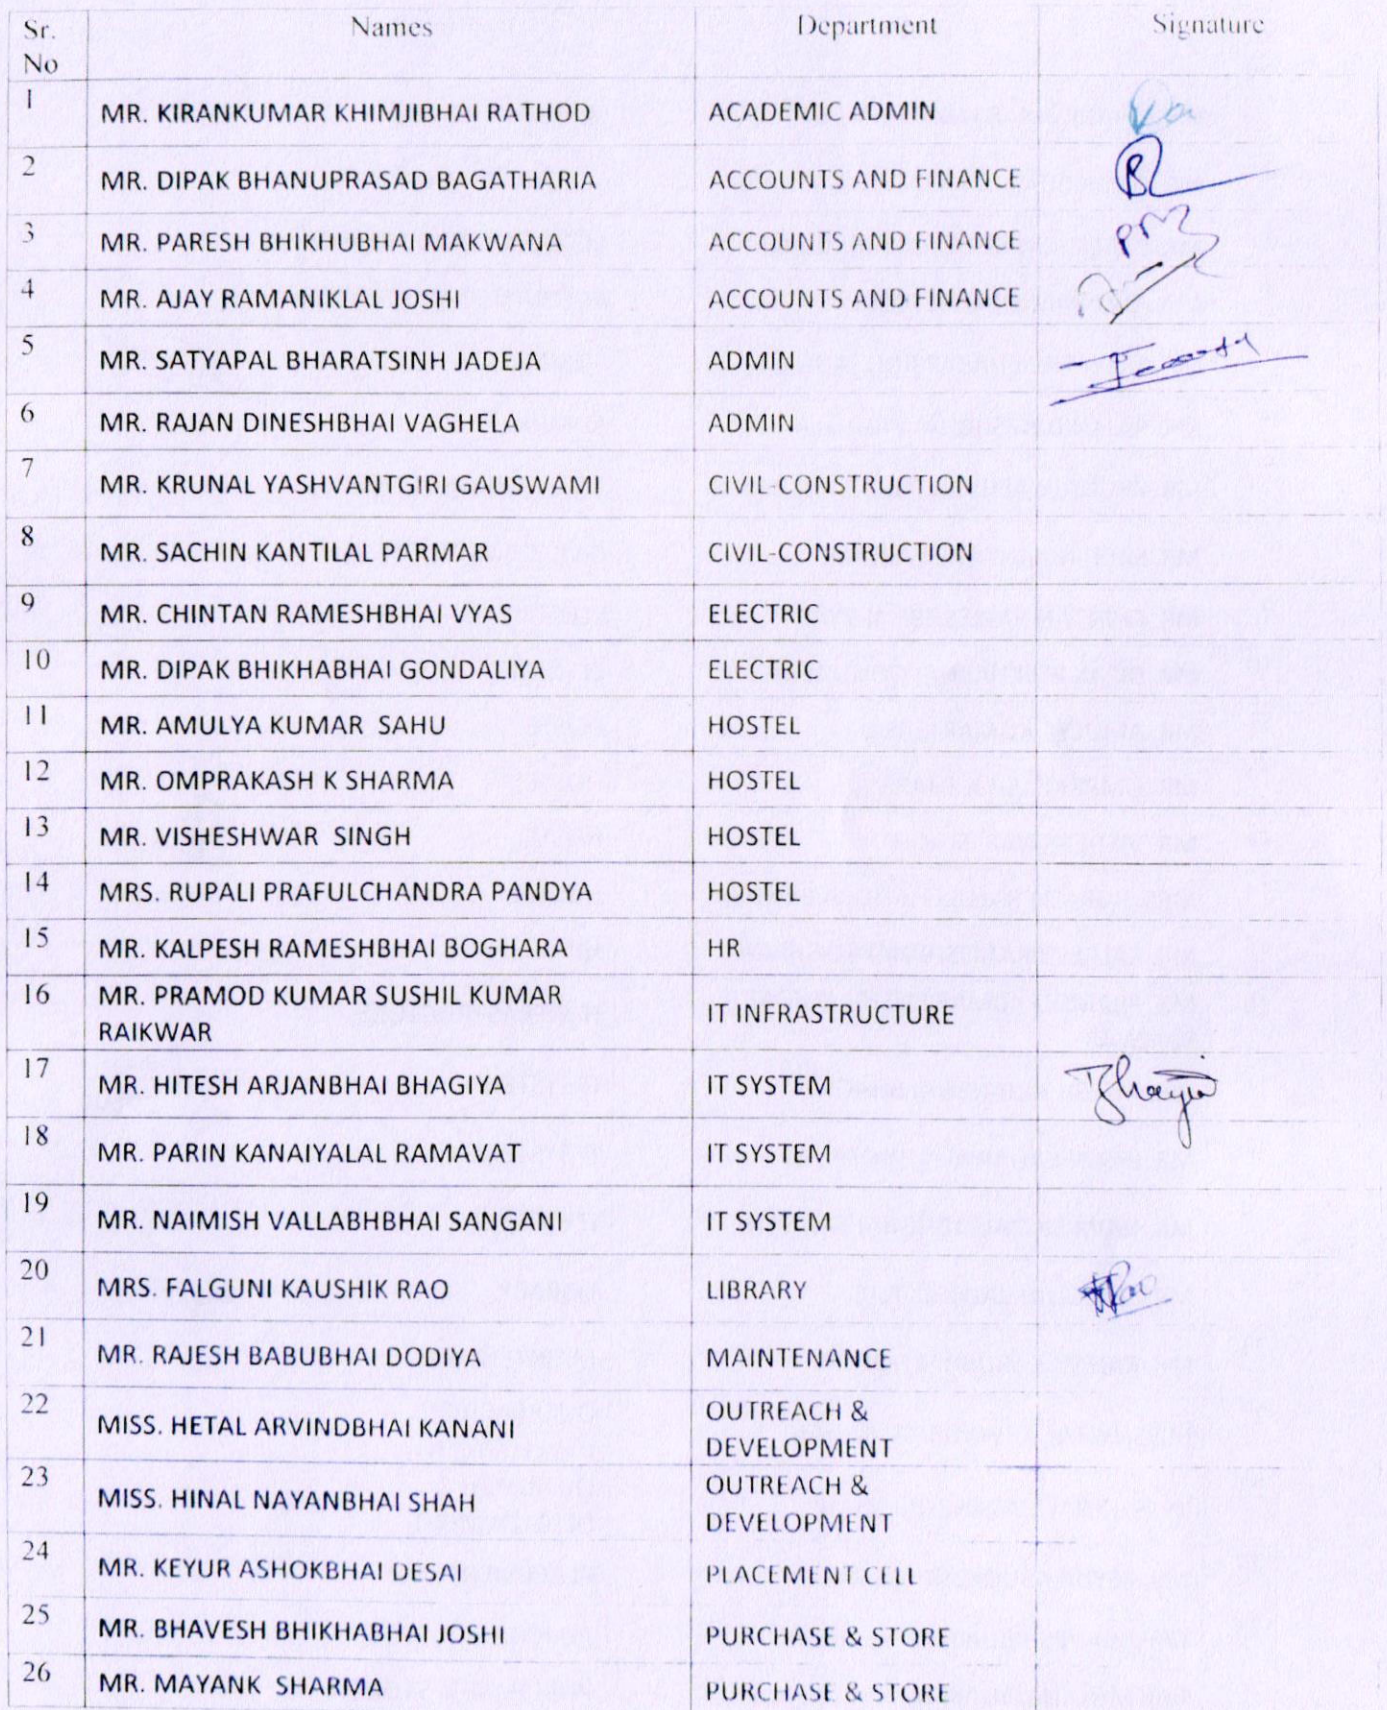 Sr. No Names Department Signature
1 MR. KIRANKUMAR KHIMJIBHAI RATHOD ACADEMIC ADMIN
2 MR. DIPAK BHANUPRASAD BAGATHARIA ACCOUNTS AND FINANCE
3 MR. PARESH BHIKHUBHAI MAKWANA ACCOUNTS AND FINANCE
4 MR. AJAY RAMANIKLAL JOSHI ACCOUNTS AND FINANCE
5 MR. SATYAPAL BHARATSINH JADEJA ADMIN
6 MR. RAJAN DINESHBHAI VAGHELA ADMIN
7 MR. KRUNAL YASHVANTGIRI GAUSWAMI CIVIL-CONSTRUCTION
8 MR. SACHIN KANTILAL PARMAR CIVIL-CONSTRUCTION
9 MR. CHINTAN RAMESHBHAI VYAS ELECTRIC
10 MR. DIPAK BHIKHABHAI GONDALIYA ELECTRIC
11 MR. AMULYA KUMAR SAHU HOSTEL
12 MR. OMPRAKASH K SHARMA HOSTEL
13 MR. VISHESHWAR SINGH HOSTEL
14 MRS. RUPALI PRAFULCHANDRA PANDYA HOSTEL
15 MR. KALPESH RAMESHBHAI BOGHARA HR
16 MR. PRAMOD KUMAR SUSHIL KUMAR
RAIKWAR IT INFRASTRUCTURE
17 MR. HITESH ARJANBHAI BHAGIYA IT SYSTEM
18 MR. PARIN KANAIYALAL RAMAVAT IT SYSTEM
19 MR. NAIMISH VALLABHBHAI SANGANI IT SYSTEM
20 MRS. FALGUNI KAUSHIK RAO LIBRARY
21 MR. RAJESH BABUBHAI DODIYA MAINTENANCE
22 MISS. HETAL ARVINDBHAI KANANI OUTREACH &
DEVELOPMENT
23 MISS. HINAL NAYANBHAI SHAH OUTREACH &
DEVELOPMENT
24 MR. KEYUR ASHOKBHAI DESAI PLACEMENT CELL
25 MR. BHAVESH BHIKHABHAI JOSHI PURCHASE & STORE
26 MR. MAYANK SHARMA PURCHASE & STORE